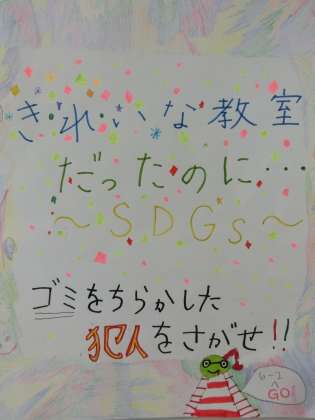 きれいな教室
だったのに・・・
～SDGs～
ゴミをちらかした
犯人をさがせ!!
6-1
へ
GO!